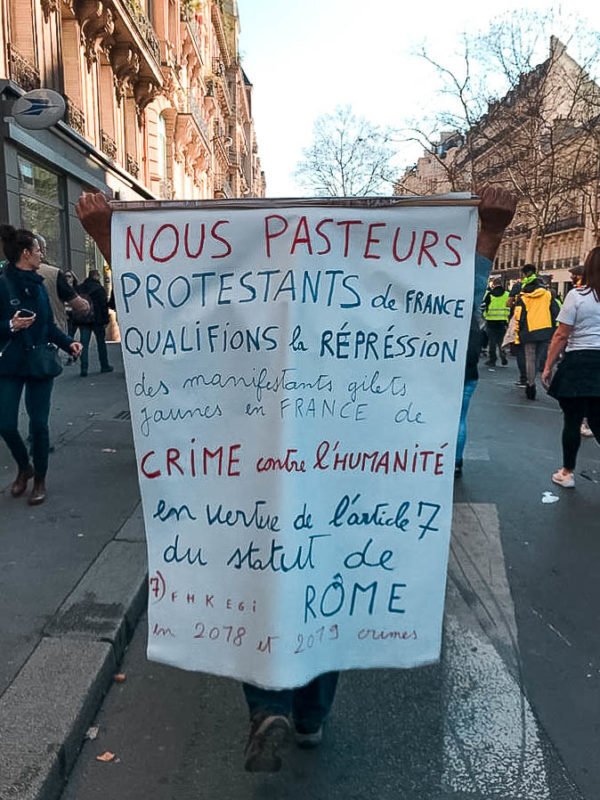 NOUS PASTEURS
PROTESTANTS de FRANCE
QUALIFIONS la RÉPRÉSSION
des manifestants gilets
jaunes en FRANCE de
CRIME contre l'HUMANITÉ
en vertue de l'article 7
du statut de
RÔME
7) F H K E G i
en 2018 et 2019 crimes